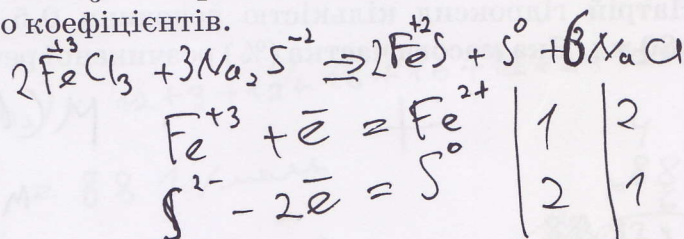 о коефіцієнтів.
2Fe⁺³Cl₃ + 3Na₂S⁻² = 2Fe⁺²S + S⁰ + 6NaCl
Fe⁺³ + ē = Fe²⁺ | 1 | 2
S²⁻ - 2ē = S⁰ | 2 | 1